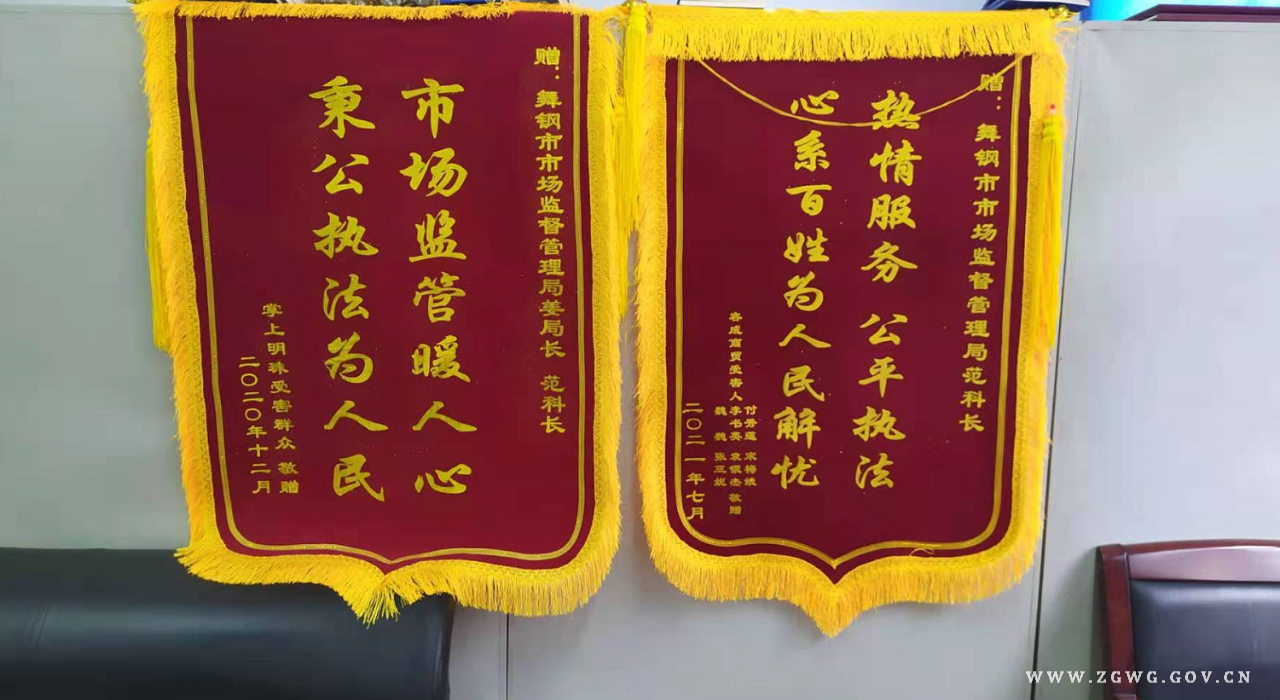 赠：舞钢市市场监督管理局姜局长 范科长
市场监管暖人心
秉公执法为人民
掌上明珠受害群众 敬赠
二〇二〇年十二月
赠：舞钢市市场监督管理局范科长
热情服务 公平执法
心系百姓为人民解忧
客成商贸受害人
李书英 袁银杰 敬赠
魏 魏 张三妮
二〇二一年七月
WWW.ZGWG.GOV.CN